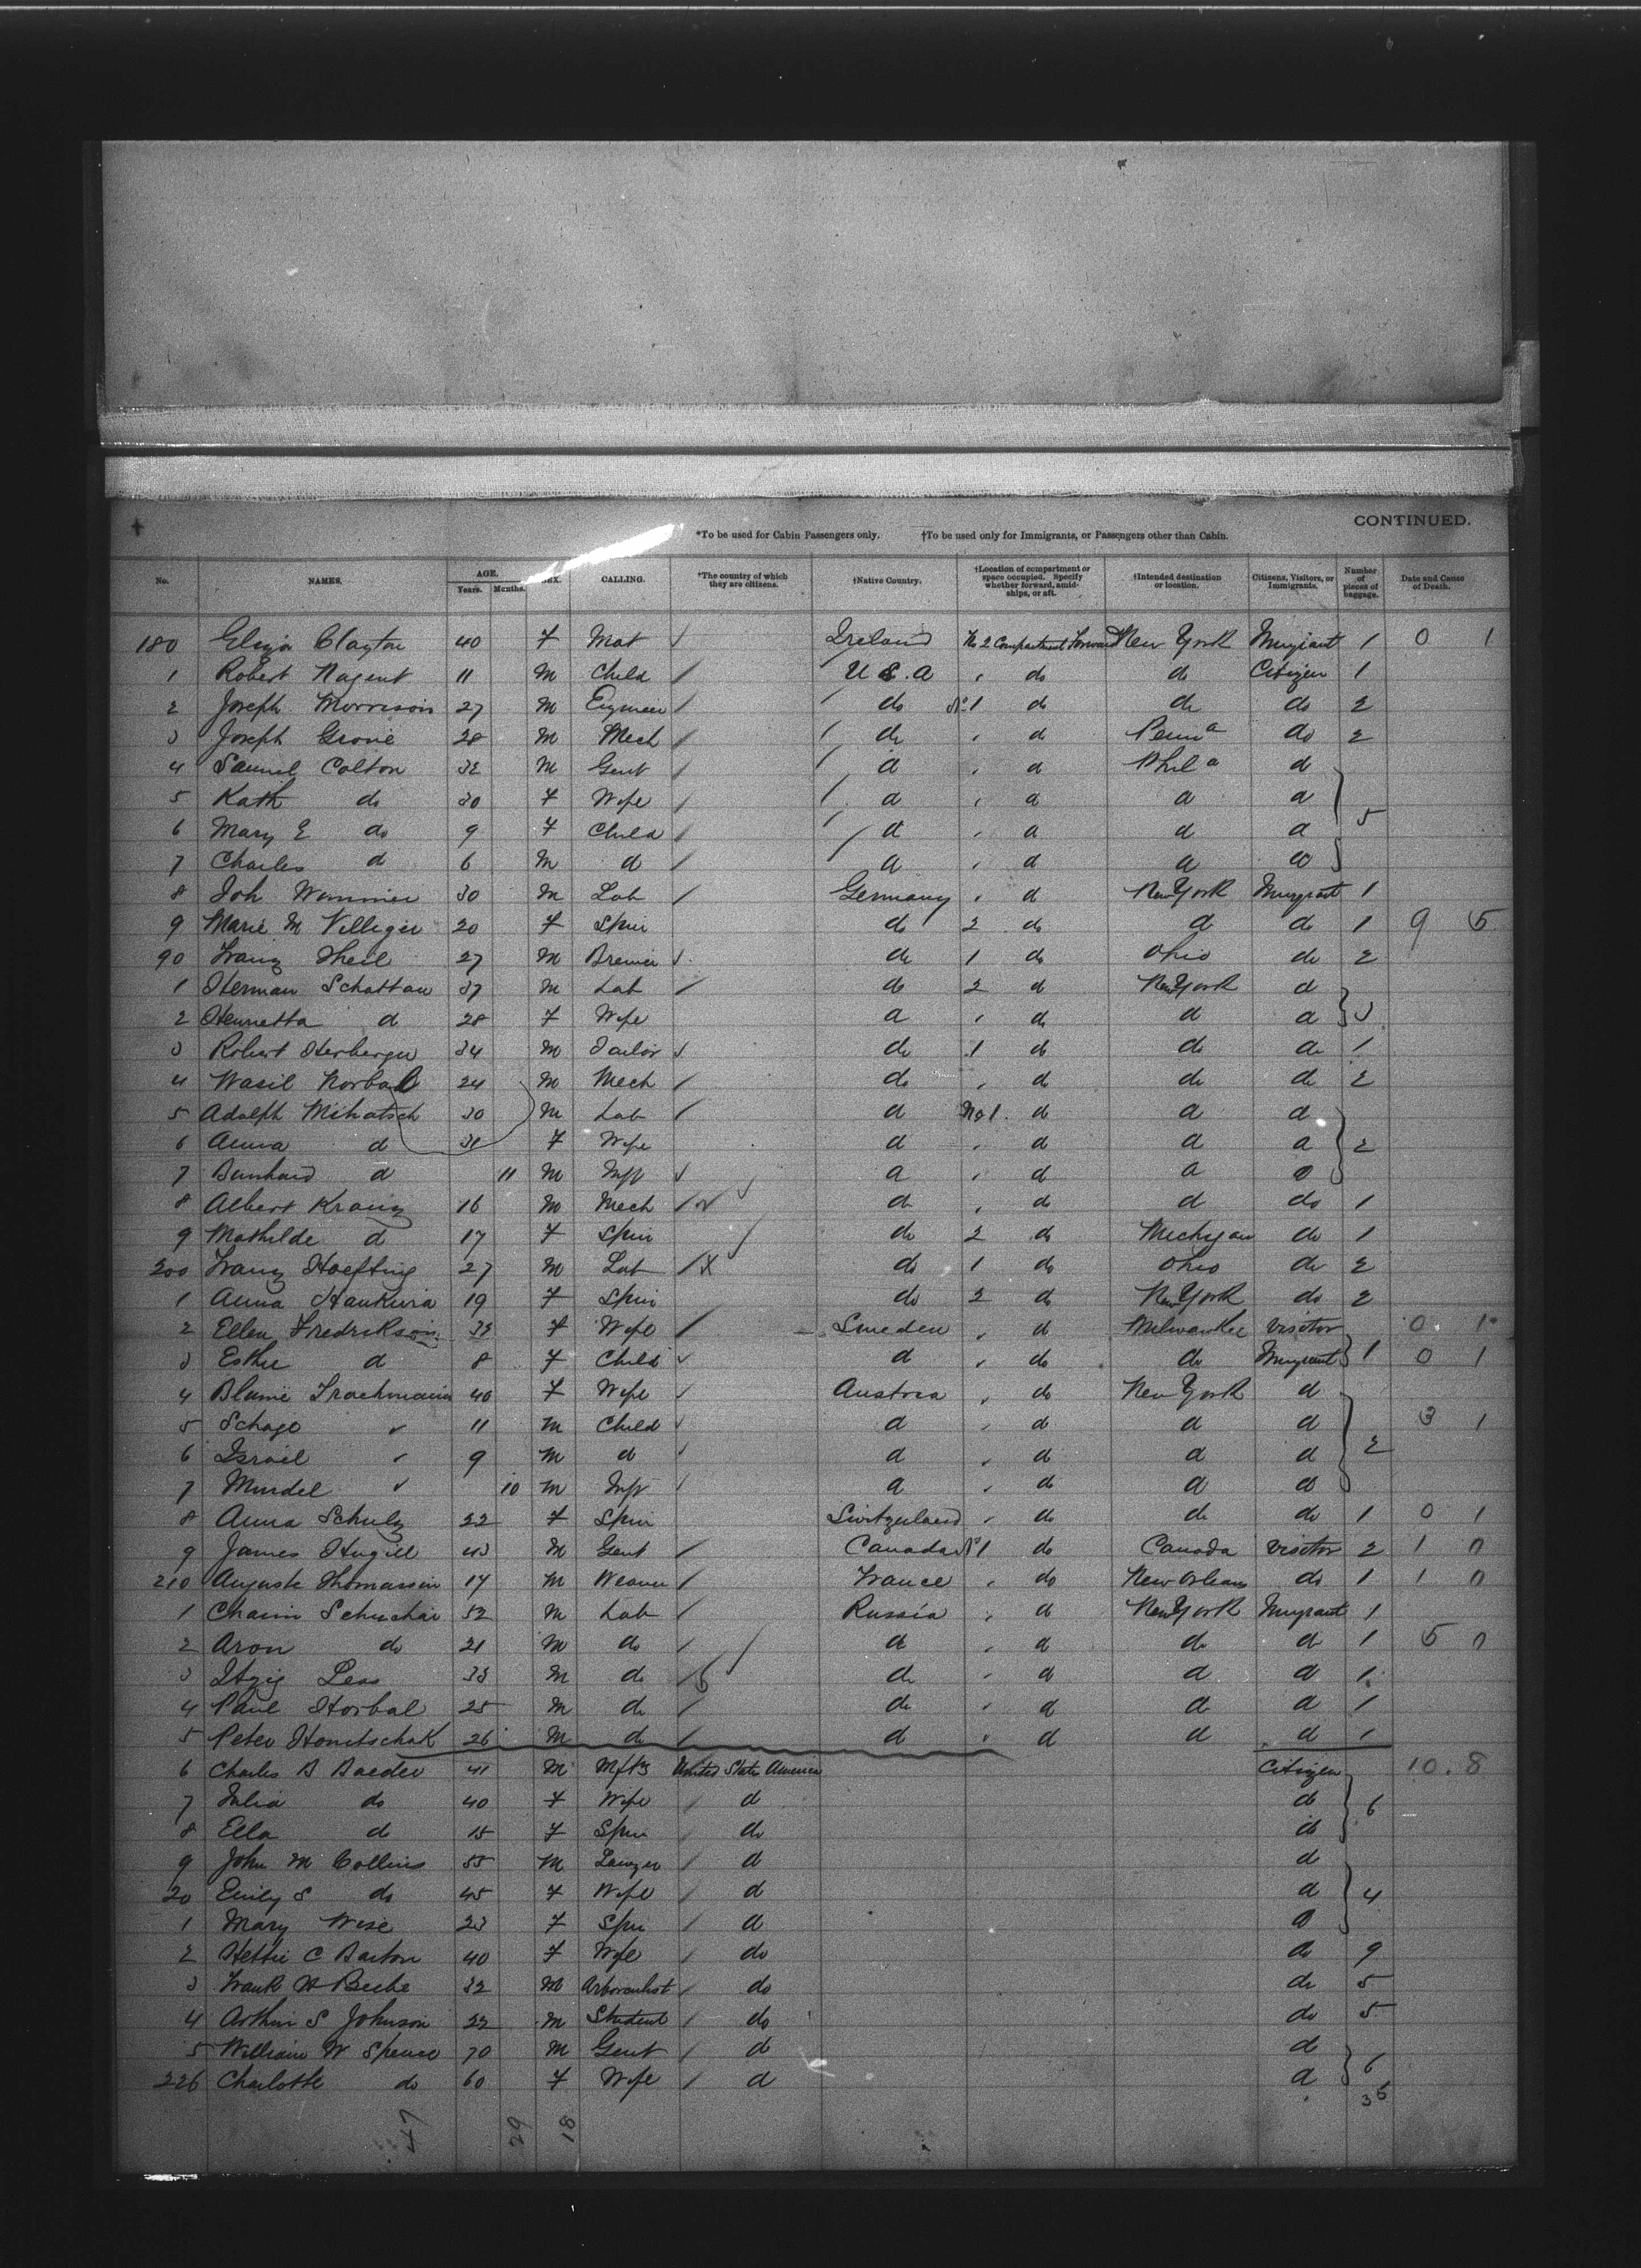 CONTINUED.
*To be used for Cabin Passengers only. †To be used only for Immigrants, or Passengers other than Cabin.
No. NAMES. AGE. Years. Months. SEX. CALLING. *The country of which they are citizens. †Native Country. †Location of compartment or space occupied. Specify whether forward, amidships, or aft. †Intended destination or location. Citizens, Visitors, or Immigrants. Number of pieces of baggage. Date and Cause of Death.
180 Eliza Clayton 40 F Mat Ireland No 2 Compartment Forward New York Imigrant 1 0 1
1 Robert Nugent 11 M Child U S. A " do do Citizen 1
2 Joseph Morrison 27 M Engineer do No 1 do do do 2
3 Joseph Grove 28 M Mech do " do Penna do 2
4 Samuel Colton 32 M Gent do " do Phila do
5 Kath do 30 F Wife do " do do do 5
6 Mary E do 9 F Child do " do do do
7 Charles do 6 M do do " do do do
8 Joh 30 M Lab Germany " do New York Imigrant 1
9 Marie M Villiger 20 F Spin do 2 do do do 1 9 5
90 Franz Theil 27 M do 1 do Ohio do 2
1 Herman Schattau 37 M Lab do 2 do New York do
2 Henrietta do 28 F Wife do " do do do 3
3 Robert Herberger 34 M Tailor do 1 do do do 1
4 Wasil Horbal 24 M Mech do " do do do 2
5 Adolph Mihatsch 30 M Lab do No 1. do do do
6 Anna do 31 F Wife do " do do do 2
7 Bernhard do 11 M Inft do " do do do
8 Albert Kranz 16 M Mech do " do do do 1
9 Mathilde do 17 F Spin do 2 do Michigan do 1
200 Franz Hoefting 27 M Lab X do 1 do Ohio do 2
1 Anna 19 F Spin do 2 do New York do 2
2 Ellen Fredrikson 33 F Wife Sweden " do Milwaukee Visitor 0 1
3 Esther do 8 F Child do " do do Imigrant 1 0 1
4 Blume Trachmann 40 F Wife Austria " do New York do
5 Schage " 11 M Child do " do do do 3 1
6 Israel " 9 M do do " do do do 2
7 Mendel " 10 M Inft do " do do do
8 Anna Schulz 22 F Spin Switzerland " do do do 1 0 1
9 James Hugill 43 M Gent Canada No 1 do Canada Visitor 2 1 0
210 Auguste Thomassin 17 M Weaver France " do New Orleans do 1 1 0
1 Chaim 52 M Lab Russia " do New York Imigrant 1
2 Aron do 21 M do do " do do do 1 5 0
3 Itzig Less 33 M do do " do do do 1
4 Paul Horbal 25 M do do " do do do 1
5 Peter Honetschak 26 M do do " do do do 1
6 Charles B Baeder 41 M Mftr United States America Citizen 10. 8
7 Julia do 40 F Wife do do 6
8 Ella do 15 F Spin do do
9 John M Collins 55 M Lawyer do do
20 Emily S do 45 F Wife do do 4
1 Mary Wise 23 F Spin do do
2 Hettie C Barton 40 F Wife do do 9
3 Frank H Beebe 32 M do do 5
4 Arthur S Johnson 22 M Student do do 5
5 William W Spence 70 M Gent do do
226 Charlotte do 60 F Wife do do 6
35
47 29 18